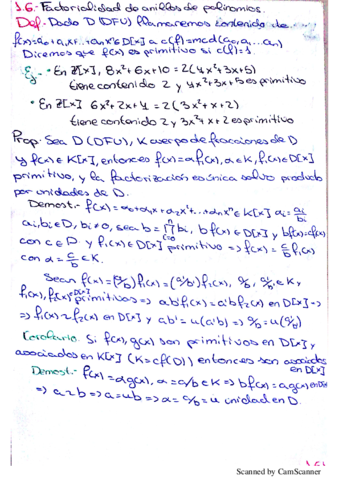 3.6.- Factorialidad de anillos de polinomios.
Def- Dado D (DFU) llamaremos contenido de
f(x)=a₀+a₁x+...+aₙxⁿ∈D[x] a c(f)=mcd(a₀,a₁,...aₙ)
Dicemos que f(x) es primitivo si c(f)=1.
Ej- • En Z[x], 8x²+6x+10=2(4x²+3x+5)
tiene contenido 2 y 4x²+3x+5 es primitivo
• En Z[x] 6x²+2x+4=2(3x²+x+2)
tiene contenido 2 y 3x²+x+2 es primitivo
Prop- Sea D (DFU), K cuerpo de fracciones de D
y f(x)∈K[x], entonces f(x)=αf₁(x), α∈K, f₁(x)∈D[x]
primitivo, y la factorización es única salvo producto
por unidades de D.
Demost.- f(x)=α₀+α₁x+α₂x²+...+αₙxⁿ∈K[x] αᵢ=aᵢ/bᵢ
aᵢ,bᵢ∈D, bᵢ≠0, sea b=∏ⁿᵢ₌₀bᵢ, bf(x)∈D[x] y bf(x)=cf₁(x)
con c∈D y f₁(x)∈D[x] primitivo => f(x)=c/b f₁(x)
con α=c/b∈K.
Sean f(x)=(a/b)f₁(x)=(a'/b')f₂(x), a/b, a'/b'∈K y
f₁(x), f₂(x)∈D[x] primitivos => ab'f₁(x)=a'bf₂(x) en D[x] =>
=> f₁(x)~f₂(x) en D[x] y ab'=u(a'b) => a/b=u(a'/b')
Corolario. Si f(x),g(x) son primitivos en D[x] y
asociados en K[x] (K=cf(D)) entonces son asociados
en D[x]
Demost.- f(x)=αg(x), α=a/b∈K => bf(x)=ag(x) en D[x]
=> a~b => a=ub => α=a/b=u unidad en D.
Scanned by CamScanner